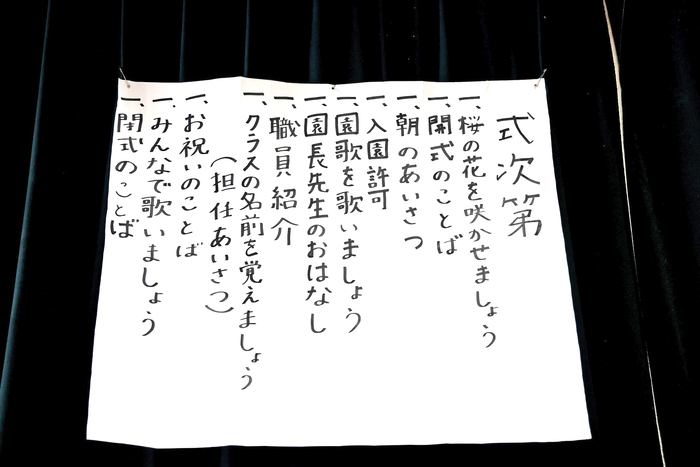 式次第
一、桜の花を咲かせましょう
一、開式のことば
一、朝のあいさつ
一、入園許可
一、園歌を歌いましょう
一、園長先生のおはなし
一、職員紹介
一、クラスの名前を覚えましょう
（担任あいさつ）
一、お祝いのことば
一、みんなで歌いましょう
一、閉式のことば